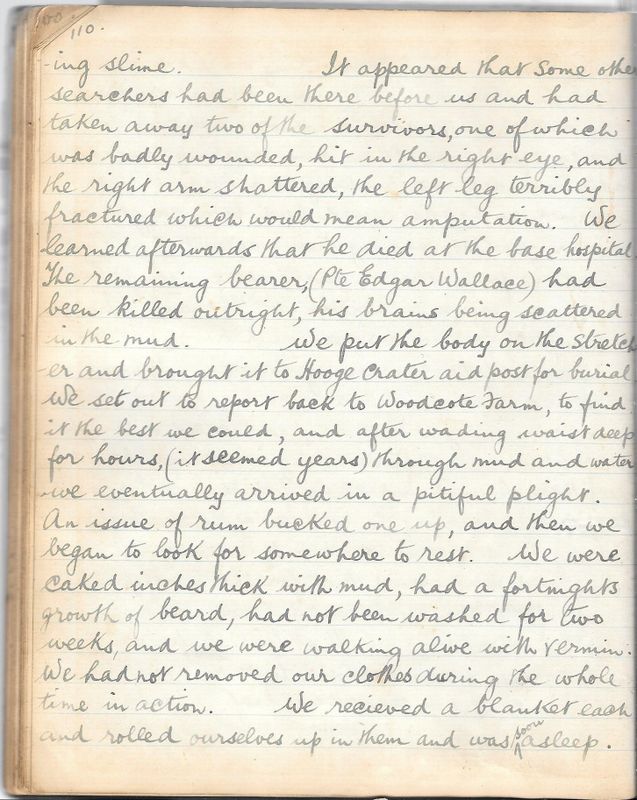 110.
-ing slime. It appeared that some othe
searchers had been there before us and had
taken away two of the survivors, one of which
was badly wounded, hit in the right eye, and
the right arm shattered, the left leg terribly
fractured which would mean amputation. We
learned afterwards that he died at the base hospital.
The remaining bearer, (Pte Edgar Wallace) had
been killed outright, his brains being scattered
in the mud. We put the body on the stretch
-er and brought it to Hooge Crater aid post for burial
We set out to report back to Woodcote Farm, to find
it the best we could, and after wading waist deep
for hours, (it seemed years) through mud and water
we eventually arrived in a pitiful plight.
An issue of rum bucked one up, and then we
began to look for somewhere to rest. We were
caked inches thick with mud, had a fortnights
growth of beard, had not been washed for two
weeks, and we were walking alive with vermin.
We had not removed our clothes during the whole
time in action. We recieved a blanket each
and rolled ourselves up in them and was soon asleep.